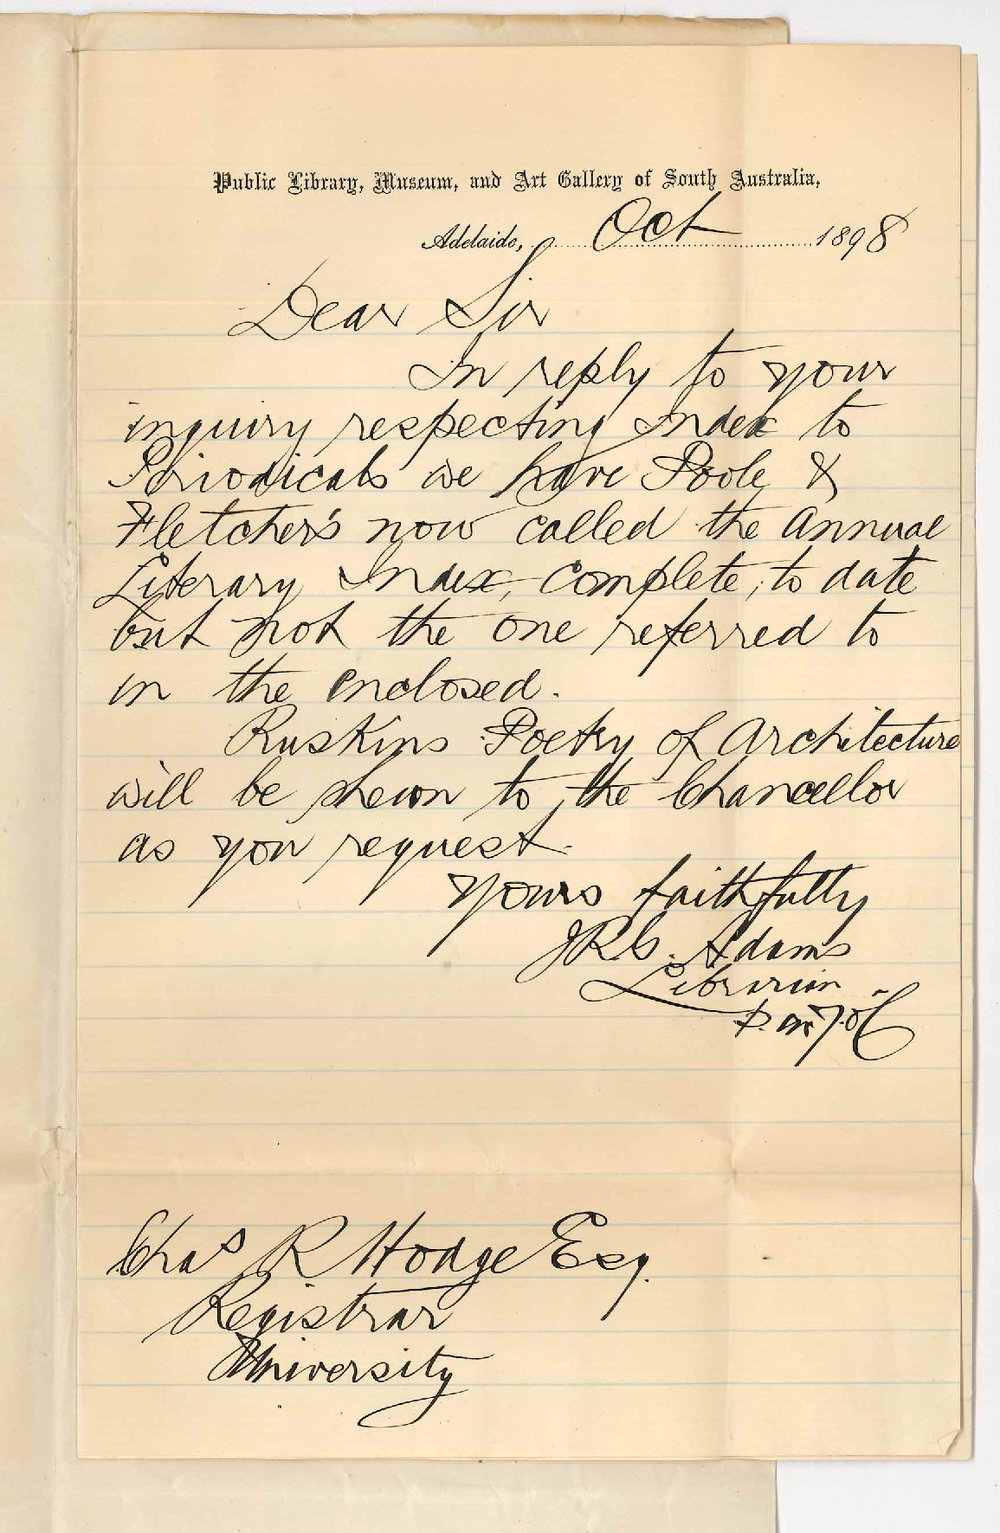 Public Library, Museum, and Art Gallery of South Australia,
Adelaide, Oct 1898
Dear Sir
In reply to your
inquiry respecting Index to
Periodicals we have Poole &
Fletcher's now called the Annual
Literary Index, complete, to date
but not the one referred to
in the enclosed.
Ruskins Poetry of Architecture
will be shewn to the Chancellor
as you request.
Yours faithfully
JRG. Adams
Librarian
Chas R Hodge Esq.
Registrar
University